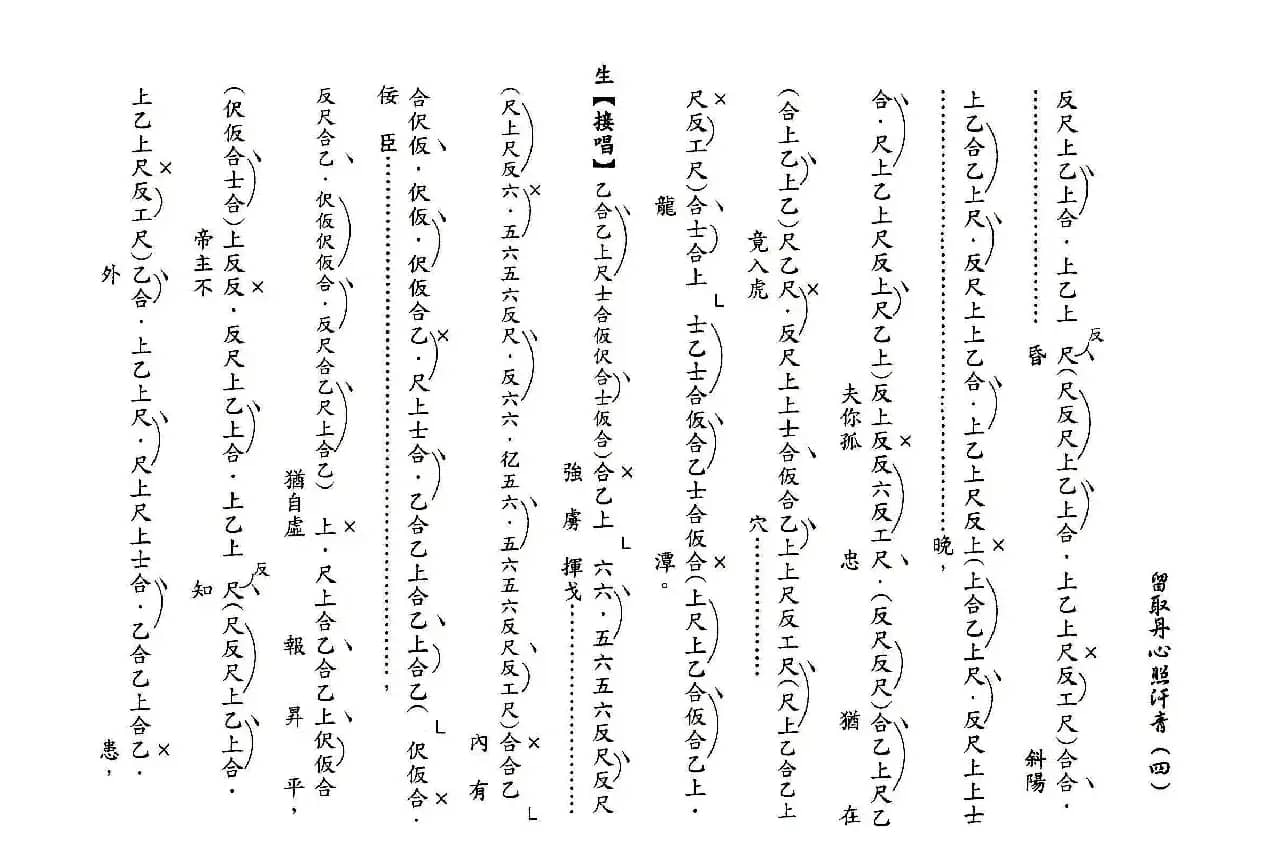 留取丹心照汗青（四）
反尺上乙上合．上乙上 尺（尺反尺上乙上合．上乙上尺反工尺）合合．
反
昏 斜陽
上乙合乙上尺．反尺上上乙合．上乙上尺反上（上合乙上尺．反尺上上士
晚，
合．尺上乙上尺反上尺乙上）反上反反六反工尺．（反尺反尺）合乙上尺乙
夫你孤 忠 猶 在
（合上乙上乙）尺乙尺．反尺上上士合仮合乙上上尺反工尺（尺上乙合乙上
竟入虎 穴
尺反工尺）合士合上 士乙士合仮合乙士合仮合（上尺上乙合仮合乙上．
龍 潭。
生【接唱】乙合乙上尺士合仮伬合士仮合）合乙上 六六．五六五六反尺反尺
強 虜 揮戈
（尺上尺反六．五六五六反尺．反六六．亿五六．五六五六反尺反工尺）合合乙
內 有
合伬仮．伬仮．伬仮合乙．尺上士合．乙合乙上合乙上合乙（ 伬仮合．
佞 臣，
反尺合乙．伬仮伬仮合．反尺合乙尺上合乙） 上．尺上合乙合乙上伬仮合
猶自虛 報 昇 平，
（伬仮合士合）上反反．反尺上乙上合．上乙上 尺（尺反尺上乙上合．
反
帝主不 知
上乙上尺反工尺）乙合．上乙上尺．尺上尺上士合．乙合乙上合乙．
外 患，